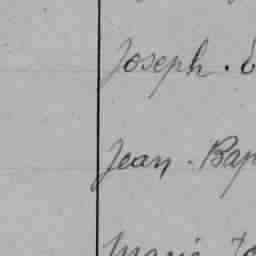 Joseph.
Jean. Bap
Marie